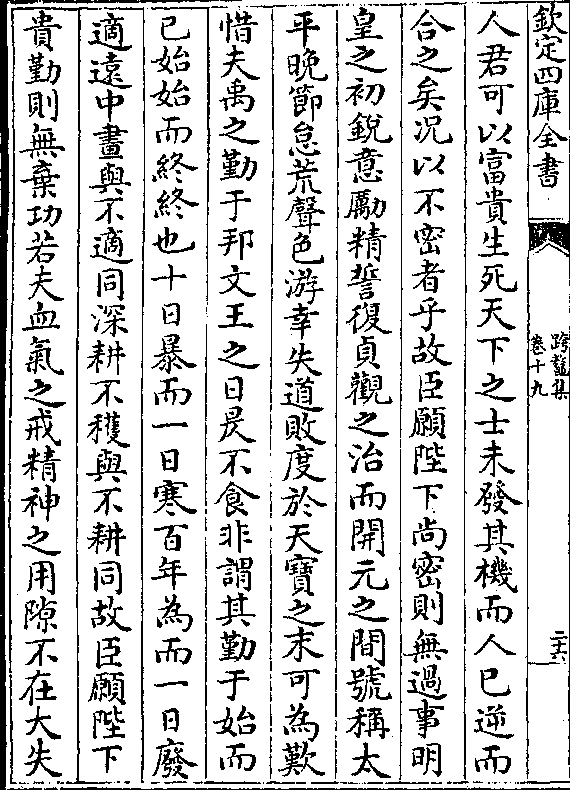 欽定四庫全書
跨鼇集
卷十九
二六
人君可以富貴生死天下之士未發其機而人已逆而
合之矣况以不密者乎故臣願陛下尚密則無過事明
皇之初鋭意勵精誓復貞觀之治而開元之間號稱太
平晚節怠荒聲色游幸失道敗度於天寶之末可為歎
惜夫禹之勤于邦文王之日昃不食非謂其勤于始而
已始始而終終也十日暴而一日寒百年為而一日廢
適遠中畫與不適同深耕不穫與不耕同故臣願陛下
貴勤則無棄功若夫血氣之戒精神之用隙不在大失